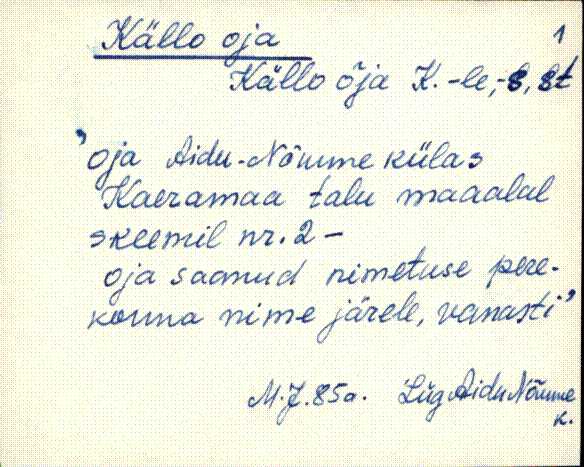 Källo oja 1
Källo õja K.-le,-s, st
'oja Aidu-Nõmme külas
Kaeramaa talu maaalal
skeemil nr. 2 –
oja saanud nimetuse pere-
konna nime järele, vanasti'
M.J. 85a. Lüg Aidu Nõmme
k.